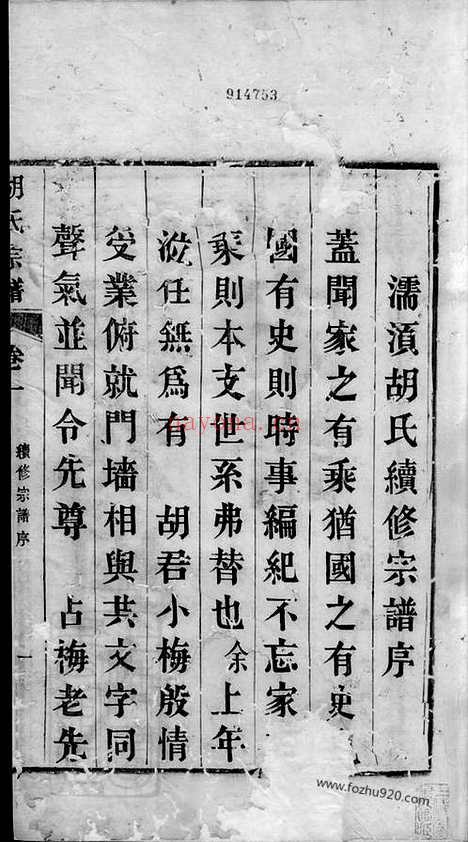 914753
濡湏胡氏續修宗譜序
蓋聞家之有乘猶國之有史
國有史則時事編紀不忘家
乘則本支世系弗替也余上年
涖任無為有 胡君小梅殷情
受業俯就門墻相與共文字同
聲氣並聞令先尊 占梅老先
胡氏宗譜 卷一 續修宗譜序 一
nayona.cn
www.fozhu920.com